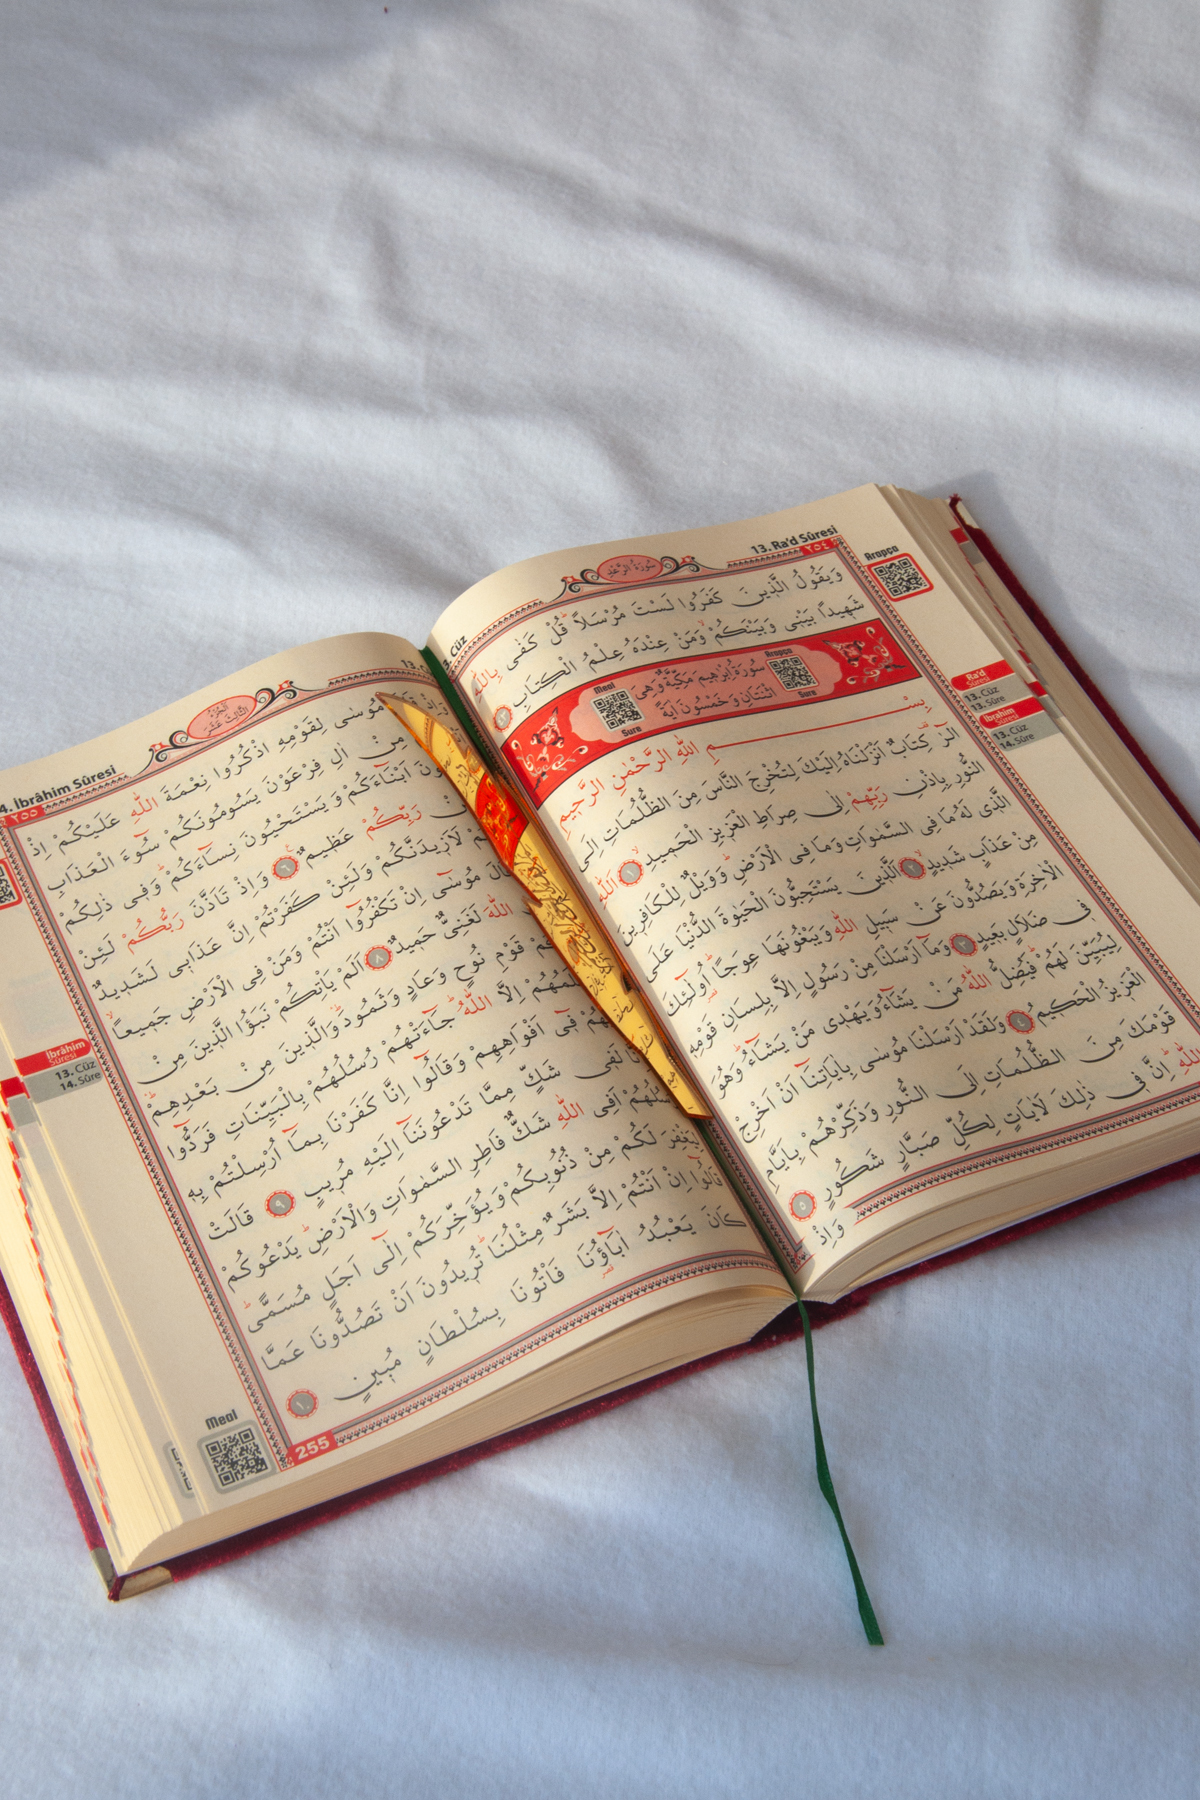 13. Ra'd Sûresi
٢٥٤
سُورَةُ الرَّعْدِ
Arapça
وَيَقُولُ الَّذِينَ كَفَرُوا لَسْتَ مُرْسَلاًۜ قُلْ كَفٰى بِاللّٰهِ
شَهِيدًا بَيْنِى وَبَيْنَكُمْۙ وَمَنْ عِنْدَهُ عِلْمُ الْكِتَابِ ٤٣
Arapça
Sure
سُورَةُ اِبْرٰهِيمَ مَكِّيَّةٌ وَهِىَ
اثْنَتَانِ وَخَمْسُونَ اٰيَةً
Meal
Sure
بِسْــــــمِ اللّٰهِ الرَّحْمٰنِ الرَّحِيمِ
الٓرٰ كِتَابٌ اَنْزَلْنَاهُ اِلَيْكَ لِتُخْرِجَ النَّاسَ مِنَ الظُّلُمَاتِ اِلَى
النُّورِ بِاِذْنِ رَبِّهِمْ اِلٰى صِرَاطِ الْعَزِيزِ الْحَمِيدِۙ ١ اَللّٰهِ
الَّذِى لَهُ مَا فِى السَّمٰوَاتِ وَمَا فِى الْاَرْضِۜ وَوَيْلٌ لِلْكَافِرِينَ
مِنْ عَذَابٍ شَدِيدٍۙ ٢ اَلَّذِينَ يَسْتَحِبُّونَ الْحَيٰوةَ الدُّنْيَا عَلَى
الْاٰخِرَةِ وَيَصُدُّونَ عَنْ سَبِيلِ اللّٰهِ وَيَبْغُونَهَا عِوَجًاۜ اُولٰٓئِكَ
فِى ضَلَالٍ بَعِيدٍ ٣ وَمَٓا اَرْسَلْنَا مِنْ رَسُولٍ اِلَّا بِلِسَانِ قَوْمِهِ
لِيُبَيِّنَ لَهُمْۜ فَيُضِلُّ اللّٰهُ مَنْ يَشَٓاءُ وَيَهْدِى مَنْ يَشَٓاءُۜ وَهُوَ
الْعَزِيزُ الْحَكِيمُ ٤ وَلَقَدْ اَرْسَلْنَا مُوسٰى بِاٰيَاتِنَٓا اَنْ اَخْرِجْ
قَوْمَكَ مِنَ الظُّلُمَاتِ اِلَى النُّورِ وَذَكِّرْهُمْ بِاَيَّامِ
اللّٰهِۜ اِنَّ فِى ذٰلِكَ لَاٰيَاتٍ لِكُلِّ صَبَّارٍ شَكُورٍ ٥
وَاِذْ
Ra'd
Sûresi
13. Cüz
13. Sûre
İbrahim
Sûresi
13. Cüz
14. Sûre
4. İbrâhim Sûresi
٢٥٥
اَلْجُزْءُ
الثَّالِثَ عَشَرَ
مُوسٰى لِقَوْمِهِ اذْكُرُوا نِعْمَةَ اللّٰهِ عَلَيْكُمْ اِذْ
مِنْ اٰلِ فِرْعَوْنَ يَسُومُونَكُمْ سُٓوءَ الْعَذَابِ
اَبْنَٓاءَكُمْ وَيَسْتَحْيُونَ نِسَٓاءَكُمْۜ وَفِى ذٰلِكُمْ
رَبِّكُمْ عَظِيمٌ ٦ وَاِذْ تَاَذَّنَ رَبُّكُمْ لَئِنْ
لَاَزِيدَنَّكُمْ وَلَئِنْ كَفَرْتُمْ اِنَّ عَذَابِى لَشَدِيدٌ
مُوسٰٓى اِنْ تَكْفُرُٓوا اَنْتُمْ وَمَنْ فِى الْاَرْضِ جَمِيعًاۙ
اللّٰهَ لَغَنِىٌّ حَمِيدٌ ٨ اَلَمْ يَأْتِكُمْ نَبَؤُا الَّذِينَ مِنْ
قَوْمِ نُوحٍ وَعَادٍ وَثَمُودَۜ وَالَّذِينَ مِنْ بَعْدِهِمْۜ
اِلَّا اللّٰهُۜ جَٓاءَتْهُمْ رُسُلُهُمْ بِالْبَيِّنَاتِ فَرَدُّٓوا
فِٓى اَفْوَاهِهِمْ وَقَالُٓوا اِنَّا كَفَرْنَا بِمَٓا اُرْسِلْتُمْ بِهِ
لَفِى شَكٍّ مِمَّا تَدْعُونَنَٓا اِلَيْهِ مُرِيبٍ ٩ قَالَتْ
اَفِى اللّٰهِ شَكٌّ فَاطِرِ السَّمٰوَاتِ وَالْاَرْضِۜ يَدْعُوكُمْ
لَكُمْ مِنْ ذُنُوبِكُمْ وَيُؤَخِّرَكُمْ اِلٰٓى اَجَلٍ مُسَمًّىۜ
قَالُٓوا اِنْ اَنْتُمْ اِلَّا بَشَرٌ مِثْلُنَاۜ تُرِيدُونَ اَنْ تَصُدُّونَا عَمَّا
كَانَ يَعْبُدُ اٰبَٓاؤُ۬نَا فَأْتُونَا بِسُلْطَانٍ مُبِينٍ ١٠
İbrâhim
Sûresi
13. Cüz
14. Sûre
Meal
255